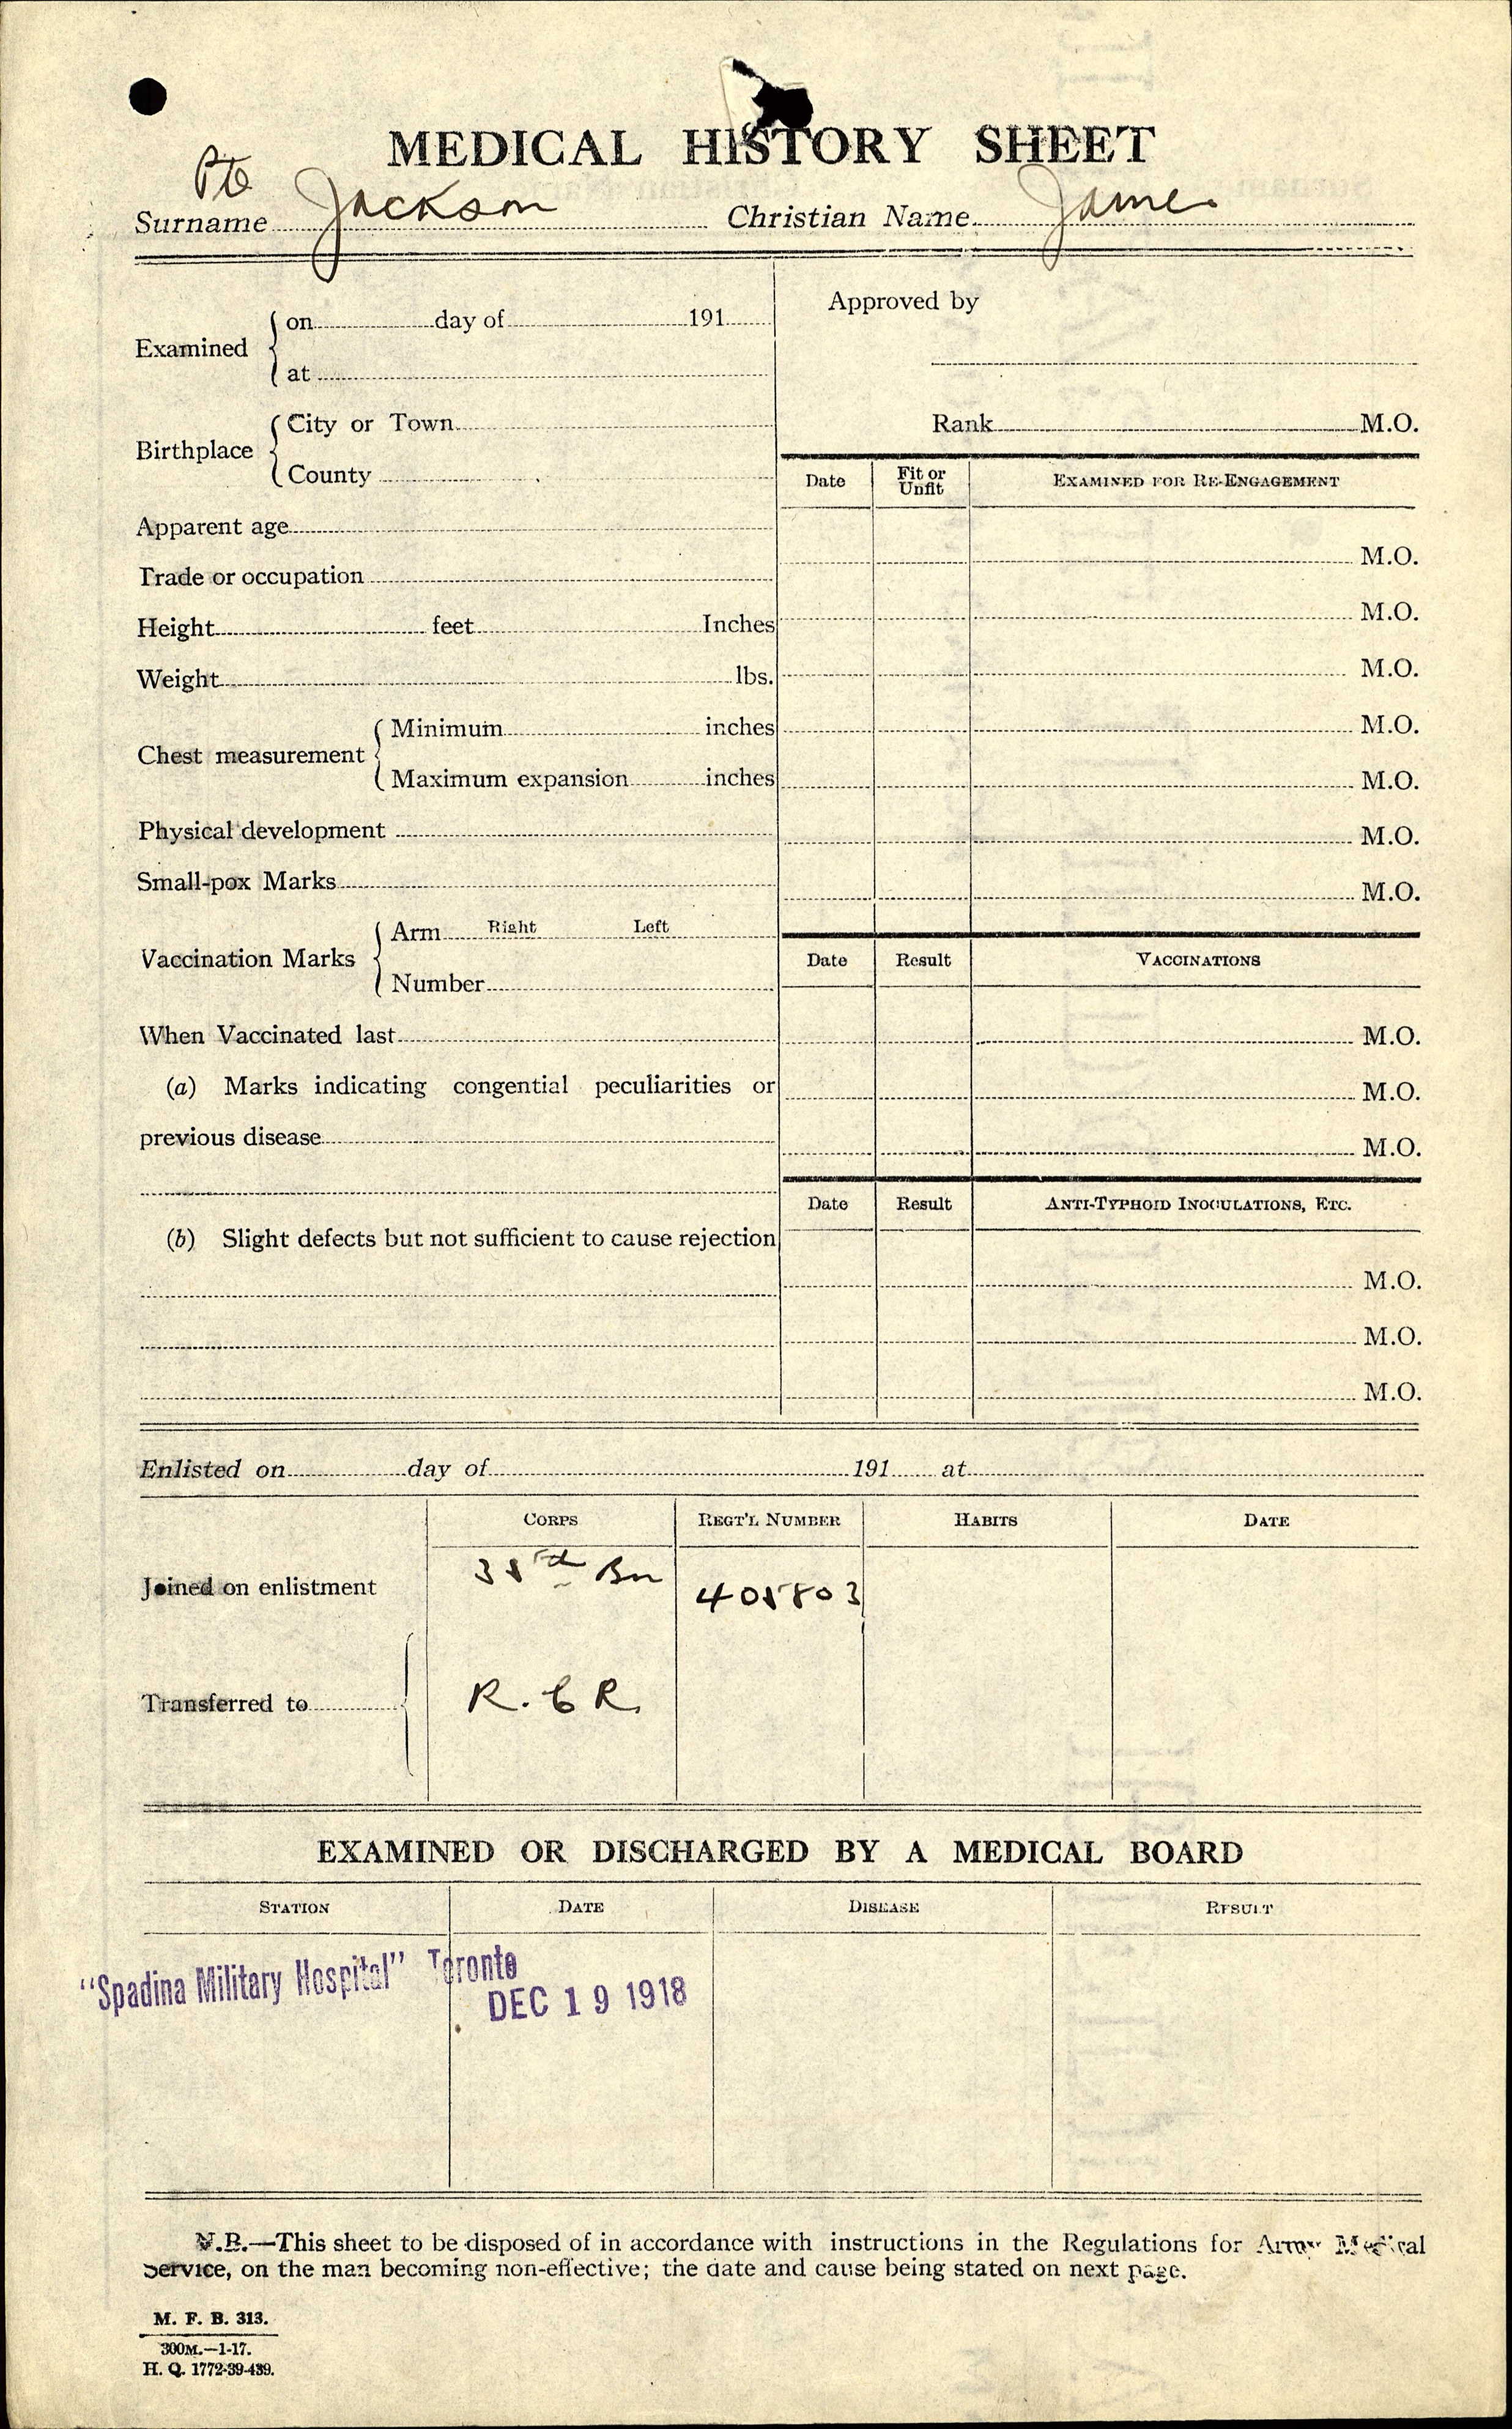 MEDICAL HISTORY SHEET
Pte
Surname Jackson Christian Name James
Examined on day of 191
at
Approved by
Rank M.O.
Birthplace City or Town
County
Date Fit or Unfit EXAMINED FOR RE-ENGAGEMENT
Apparent age
M.O.
Trade or occupation
M.O.
Height feet Inches
M.O.
Weight lbs.
M.O.
Chest measurement Minimum inches
Maximum expansion inches
M.O.
Physical development
M.O.
Small-pox Marks
M.O.
Vaccination Marks Arm Right Left
Number
Date Result VACCINATIONS
When Vaccinated last
M.O.
(a) Marks indicating congential peculiarities or
M.O.
previous disease
M.O.
Date Result ANTI-TYPHOID INOCULATIONS, ETC.
(b) Slight defects but not sufficient to cause rejection
M.O.
M.O.
M.O.
Enlisted on day of 191 at
CORPS REGT'L NUMBER HABITS DATE
Joined on enlistment Bn
Transferred to R.C R.
EXAMINED OR DISCHARGED BY A MEDICAL BOARD
STATION DATE DISEASE RESULT
"Spadina Military Hospital" Toronto
DEC 19 1918
N.B.—This sheet to be disposed of in accordance with instructions in the Regulations for Army Medical
Service, on the man becoming non-effective; the date and cause being stated on next page.
M. F. B. 313.
300M.—1-17.
H. Q. 1772-39-439.